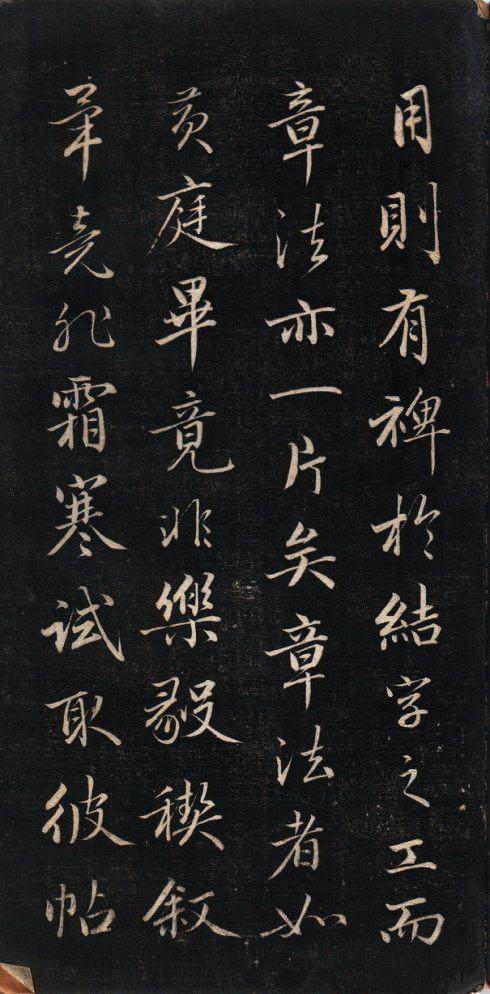 用則有裨於結字之工而
章法亦一片矣章法者如
黃庭畢竟非樂毅稧敘
畢竟非霜寒試取彼帖